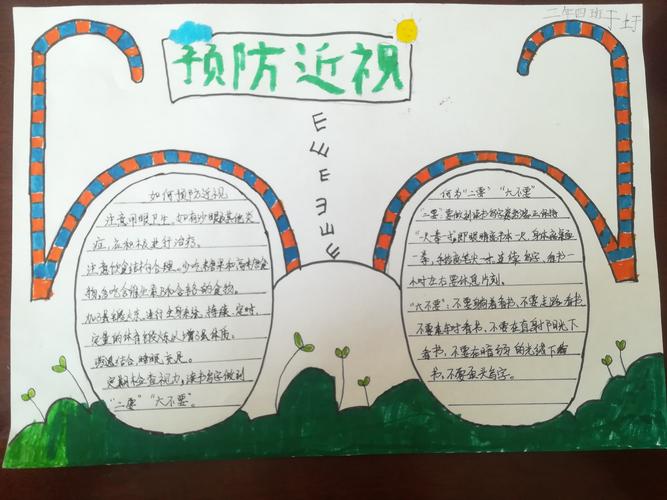 二年四班于
预防近视
E E E E E E E
如何预防近视
注意用眼卫生,如有沙眼或其他炎
症,应积极进行治疗。
注意饮食结构合理。少吃糖果和高糖
物,多吃含维生素
加强锻炼,进行
定量的体育锻炼以增强体质。
劳逸结合,睡眠充足。
定期检查视力,读书写字做到
“二要”“六不要”。
何为“二要”“六不要”
“二要”:要做到读书写字姿势端正保持
“一尺一拳一寸”即眼睛离书本一尺,身体离桌
一拳,手指离笔尖一寸,连续写字、看书一
小时左右要休息片刻。
“六不要”:不要躺着看书、不要走路看书、
不要乘车时看书、不要在直射阳光下
看书、不要在暗的光线下看
书、不要歪头写字。